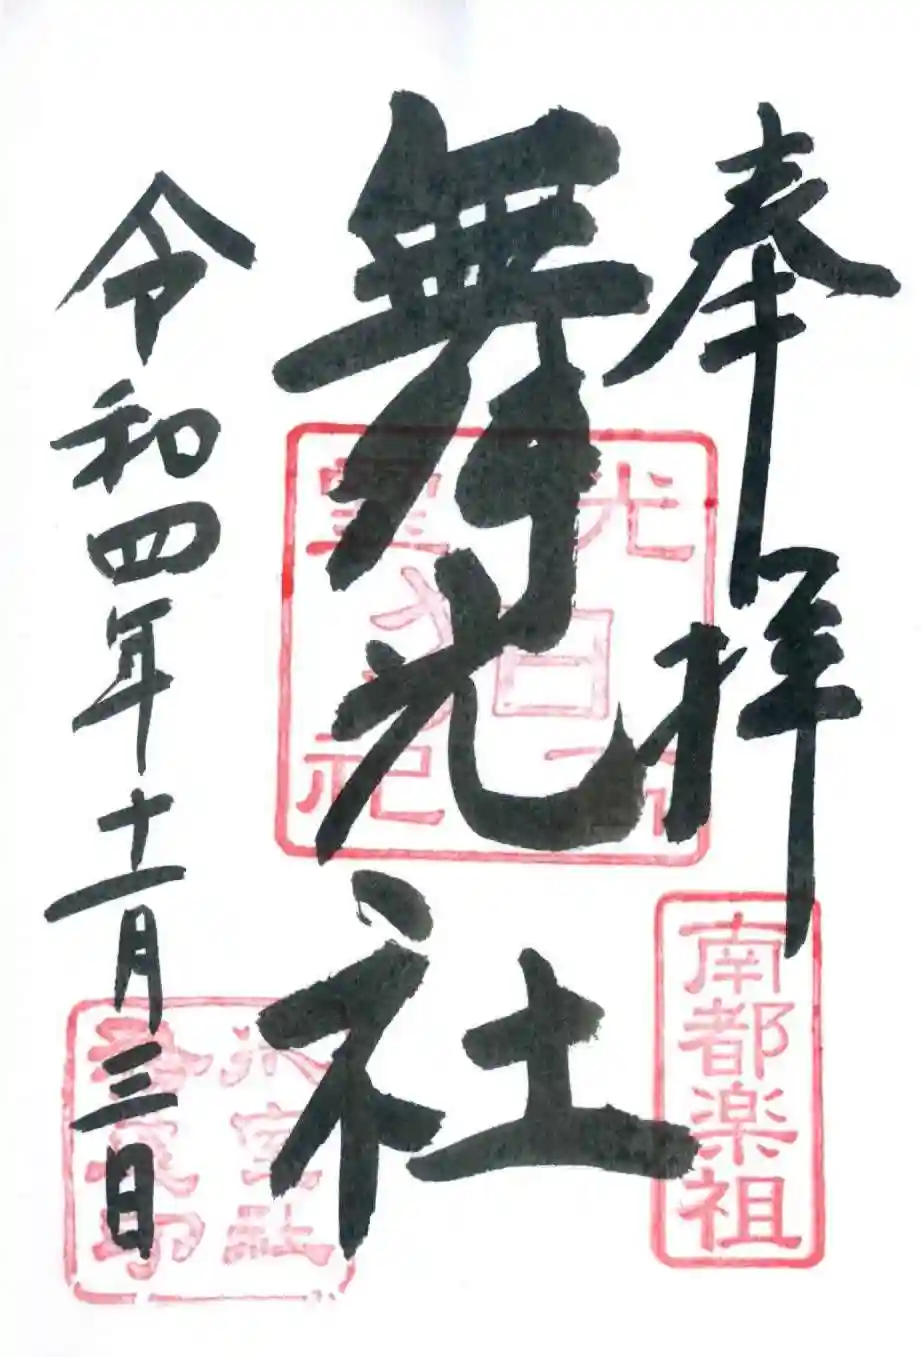 奉拝
舞光社
令和四年十一月三日
南都楽祖